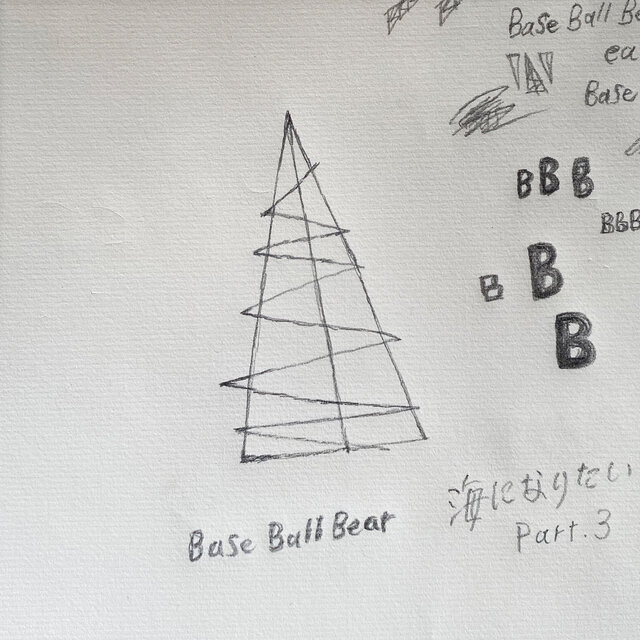 Base Ball Be
ea
Base
BBB
BBB
B
B
B
海になりたい
Part.3
Base Ball Bear